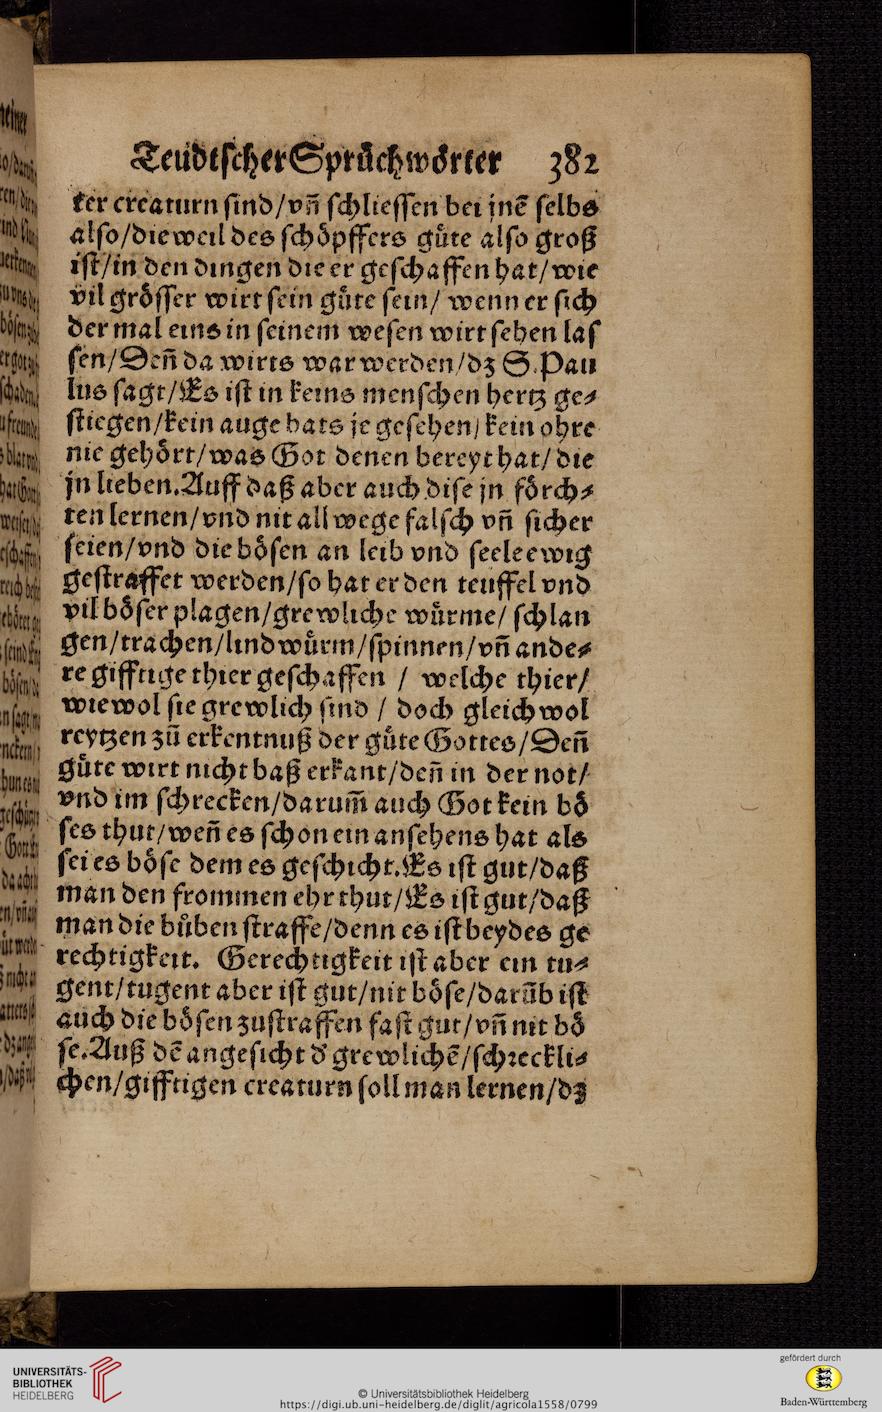 Teüdtſcher Sprüchwoͤrter 382
ter creaturn ſind/vñ ſchlieſſen bei jnē ſelbs
alſo/dieweil des ſchoͤpffers guͤte alſo groß
iſt/in den dingen die er geſchaffen hat/wie
vil groͤſſer wirt ſein guͤte ſein/ wenn er ſich
der mal eins in ſeinem weſen wirt ſehen laſ
ſen/Deñ da wirts war werden/dz S. Pau
lus ſagt/Es iſt in keins menſchen hertz ge⸗
ſtiegen/kein auge hats je geſehen/kein ohre
nie gehoͤrt/was Got denen bereyt hat/die
jn lieben. Auff daß aber auch diſe jn foͤrch⸗
ten lernen/vnd nit allwege falſch vñ ſicher
ſeien/vnd die boͤſen an leib vnd ſeele ewig
geſtraffet werden/ſo hat er den teuffel vnd
vil boͤſer plagen/grewliche wuͤrme/ ſchlan
gen/trachen/lindwuͤrm/ſpinnen/vñ ande⸗
re gifftige thier geſchaffen / welche thier/
wiewol ſie grewlich ſind / doch gleichwol
reytzen zů erkentnuß der guͤte Gottes/Deñ
guͤte wirt nicht baß erkant/deñ in der not/
vnd im ſchrecken/darum̃ auch Got kein boͤ
ſes thut/weñ es ſchon ein anſehens hat als
ſei es boͤſe dem es geſchicht. Es iſt gut/daß
man den frommen ehr thut/Es iſt gut/daß
man die buͤben ſtraffe/denn es iſt beydes ge
rechtigkeit. Gerechtigkeit iſt aber ein tu⸗
gent/tugent aber iſt gut/nit boͤſe/darūb iſt
auch die boͤſen zuſtraffen faſt gut/vñ nit boͤ
ſe. Auß dē angeſicht d' grewlichē/ſchreckli⸗
chen/gifftigen creaturn ſoll man lernen/dz
UNIVERSITÄTS-
BIBLIOTHEK
HEIDELBERG
© Universitätsbibliothek Heidelberg
https://digi.ub.uni-heidelberg.de/diglit/agricola1558/0799
gefördert durch
Baden-Württemberg